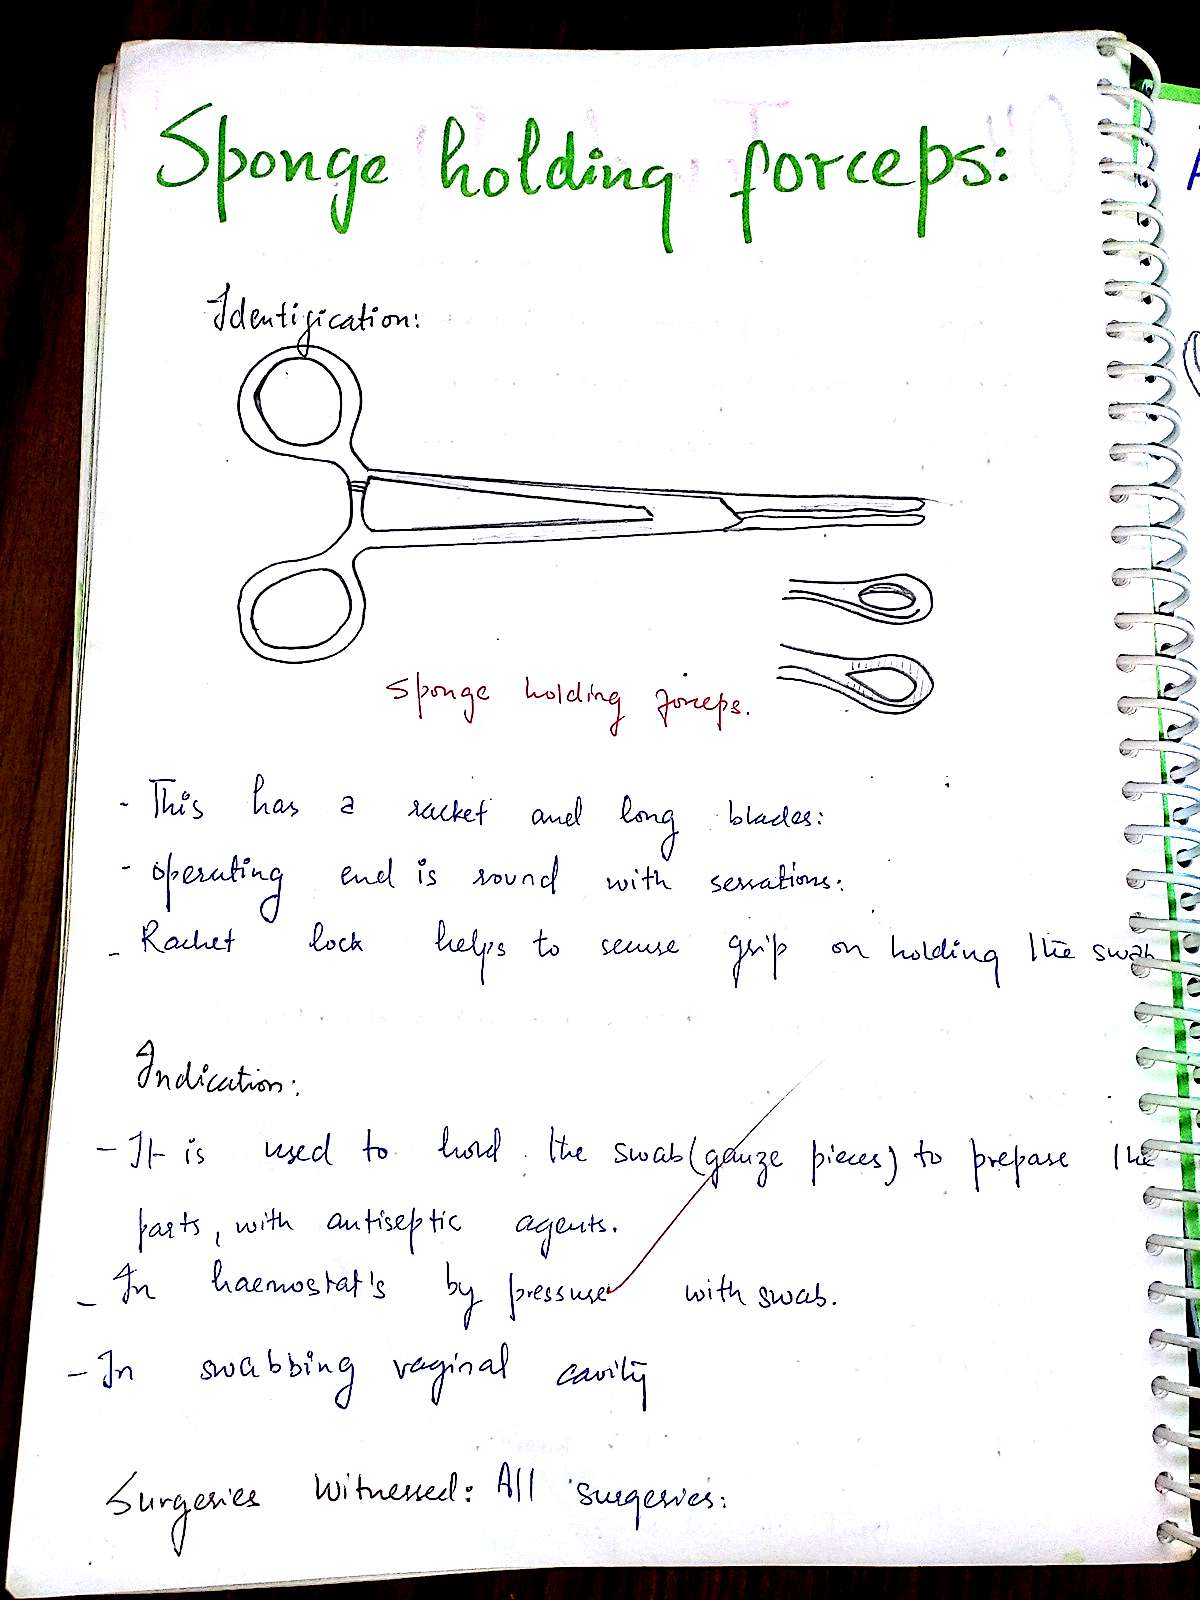 Sponge holding forceps:
Identification:
Sponge holding forceps.
- This has a racket and long blades:
- operating end is round with serrations:
- Rachet lock helps to secure grip on holding the swab
Indication:
- It is used to hold the swab (gauze pieces) to prepare the
parts, with antiseptic agents.
- In haemostat's by pressure with swab.
- In swabbing vaginal cavity
Surgeries Witnessed: All surgeries: